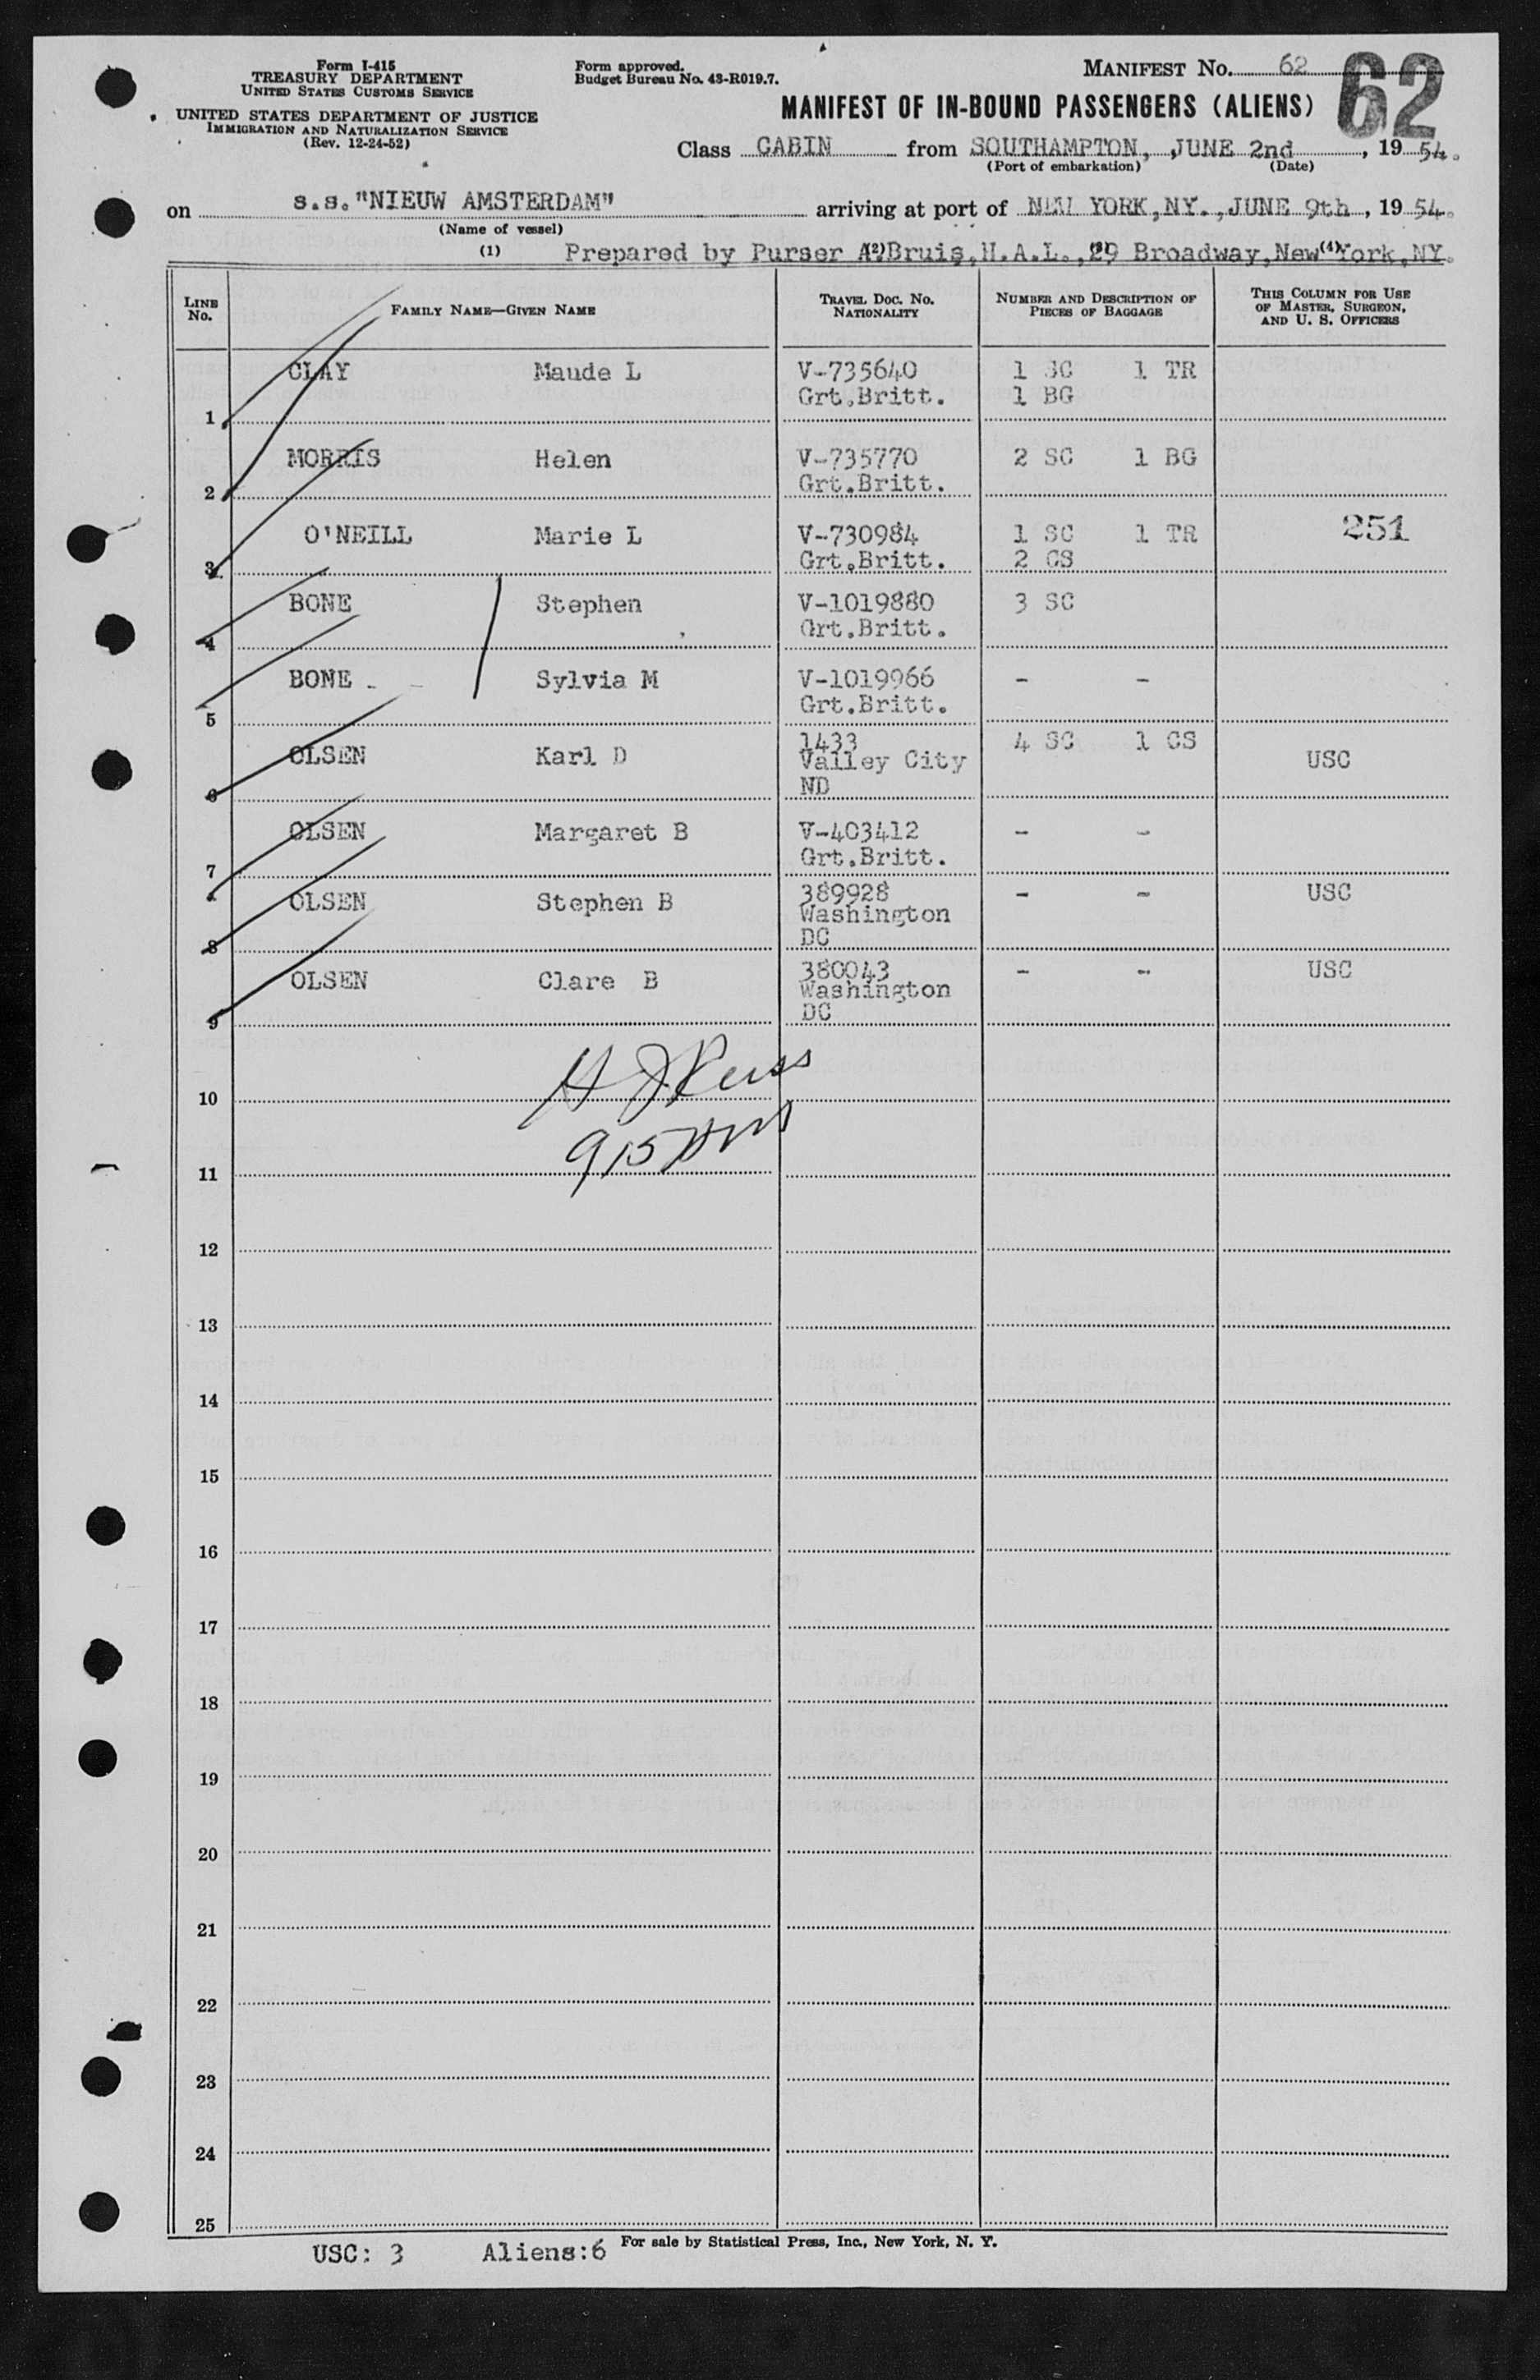 Form I-415
TREASURY DEPARTMENT
UNITED STATES CUSTOMS SERVICE
UNITED STATES DEPARTMENT OF JUSTICE
IMMIGRATION AND NATURALIZATION SERVICE
(Rev. 12-24-52)
Form approved.
Budget Bureau No. 43-R019.7.
MANIFEST No. 62
62
MANIFEST OF IN-BOUND PASSENGERS (ALIENS)
Class CABIN from SOUTHAMPTON, JUNE 2nd, 19 54.
(Port of embarkation) (Date)
on s.s."NIEUW AMSTERDAM" arriving at port of NEW YORK, NY., JUNE 9th, 19 54.
(Name of vessel)
(1) (2) (3) (4)
Prepared by Purser A. Bruis, H.A.L., 29 Broadway, New York, NY.
LINE No. FAMILY NAME—GIVEN NAME TRAVEL DOC. NO. NATIONALITY NUMBER AND DESCRIPTION OF PIECES OF BAGGAGE THIS COLUMN FOR USE OF MASTER, SURGEON, AND U. S. OFFICERS
CLAY Maude L V-735640 1 SC 1 TR
1 Grt.Britt. 1 BG
MORRIS Helen V-735770 2 SC 1 BG
2 Grt.Britt.
O'NEILL Marie L V-730984 1 SC 1 TR 251
3 Grt.Britt. 2 CS
BONE Stephen V-1019880 3 SC
4 Grt.Britt.
BONE Sylvia M V-1019966 - -
5 Grt.Britt.
OLSEN Karl D 1433 4 SC 1 CS USC
Valley City
6 ND
OLSEN Margaret B V-403412 - -
7 Grt.Britt.
OLSEN Stephen B 389928 - - USC
Washington
8 DC
OLSEN Clare B 380043 - - USC
Washington
9 DC
10
11
12
13
14
15
16
17
18
19
20
21
22
23
24
25
For sale by Statistical Press, Inc., New York, N. Y.
USC: 3 Aliens:6